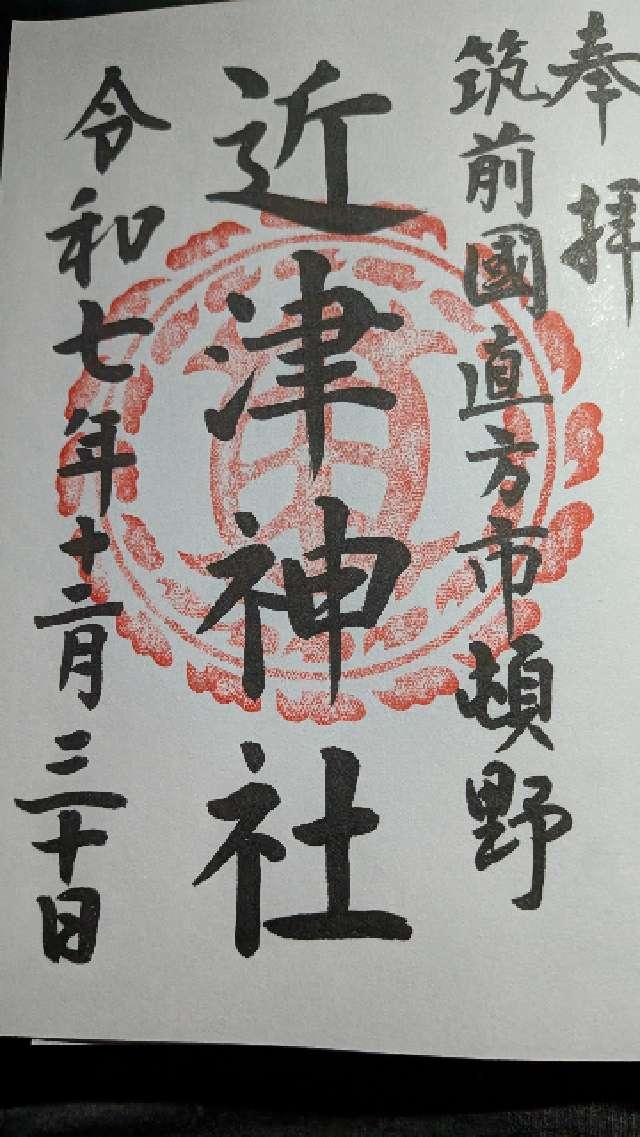 奉拝
筑前國直方市頓野
近津神社
令和七年十二月三十日